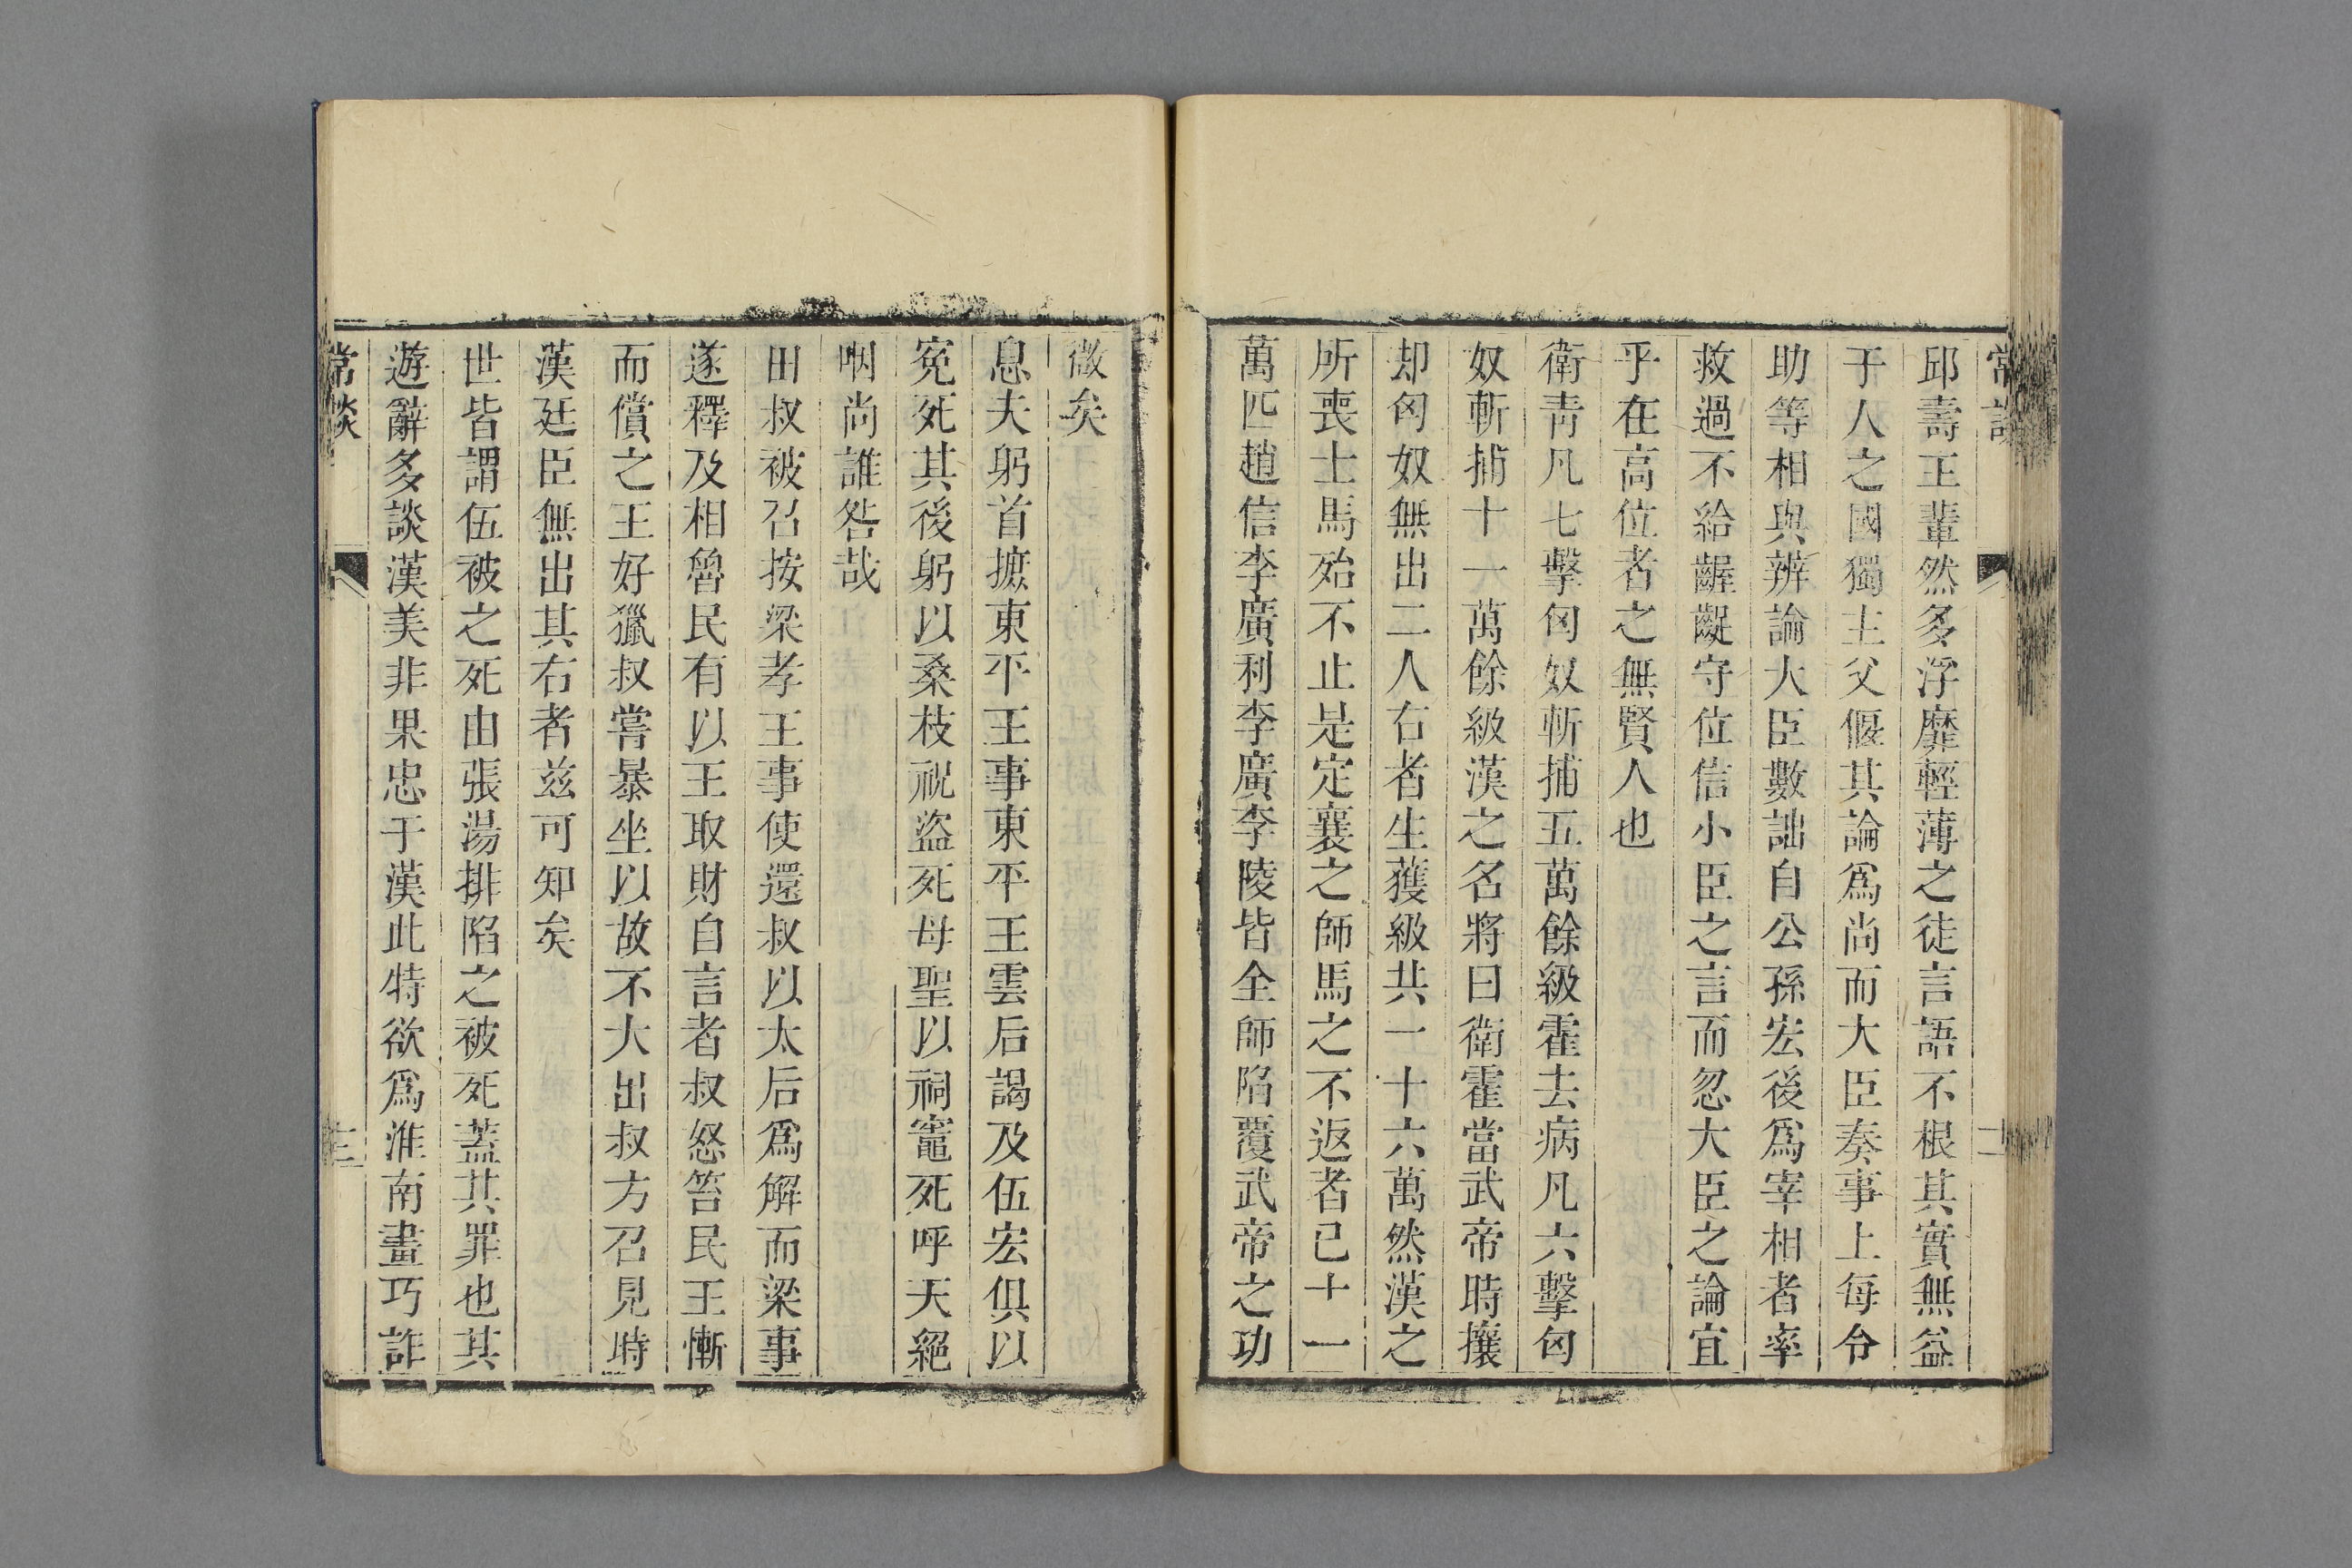 常談
二
邱壽王輩然多浮靡輕薄之徒言語不根其實無益
于人之國獨主父偃其論爲尚而大臣奏事上每令
助等相與辨論大臣數詘自公孫宏後爲宰相者率
救過不給齷齪守位信小臣之言而忽大臣之論宜
乎在高位者之無賢人也
衛青凡七擊匈奴斬捕五萬餘級霍去病凡六擊匈
奴斬捕十一萬餘級漢之名將曰衛霍當武帝時攘
却匈奴無出二人右者生獲級共一十六萬然漢之
所喪士馬殆不止是定襄之師馬之不返者已十一
萬匹趙信李廣利李廣李陵皆全師陷覆武帝之功
微矣
息夫躬首摭東平王事東平王雲后謁及伍宏俱以
寃死其後躬以桑枝祝盜死母聖以祠竈死呼天絕
咽尚誰咎哉
田叔被召按梁孝王事使還叔以太后爲解而梁事
遂釋及相魯民有以王取財自言者叔怒笞民王慚
而償之王好獵叔嘗暴坐以故不大出叔方召見時
漢廷臣無出其右者兹可知矣
世皆謂伍被之死由張湯排陷之被死蓋其罪也其
遊辭多談漢美非果忠于漢此特欲爲淮南畫巧詐
常談
三